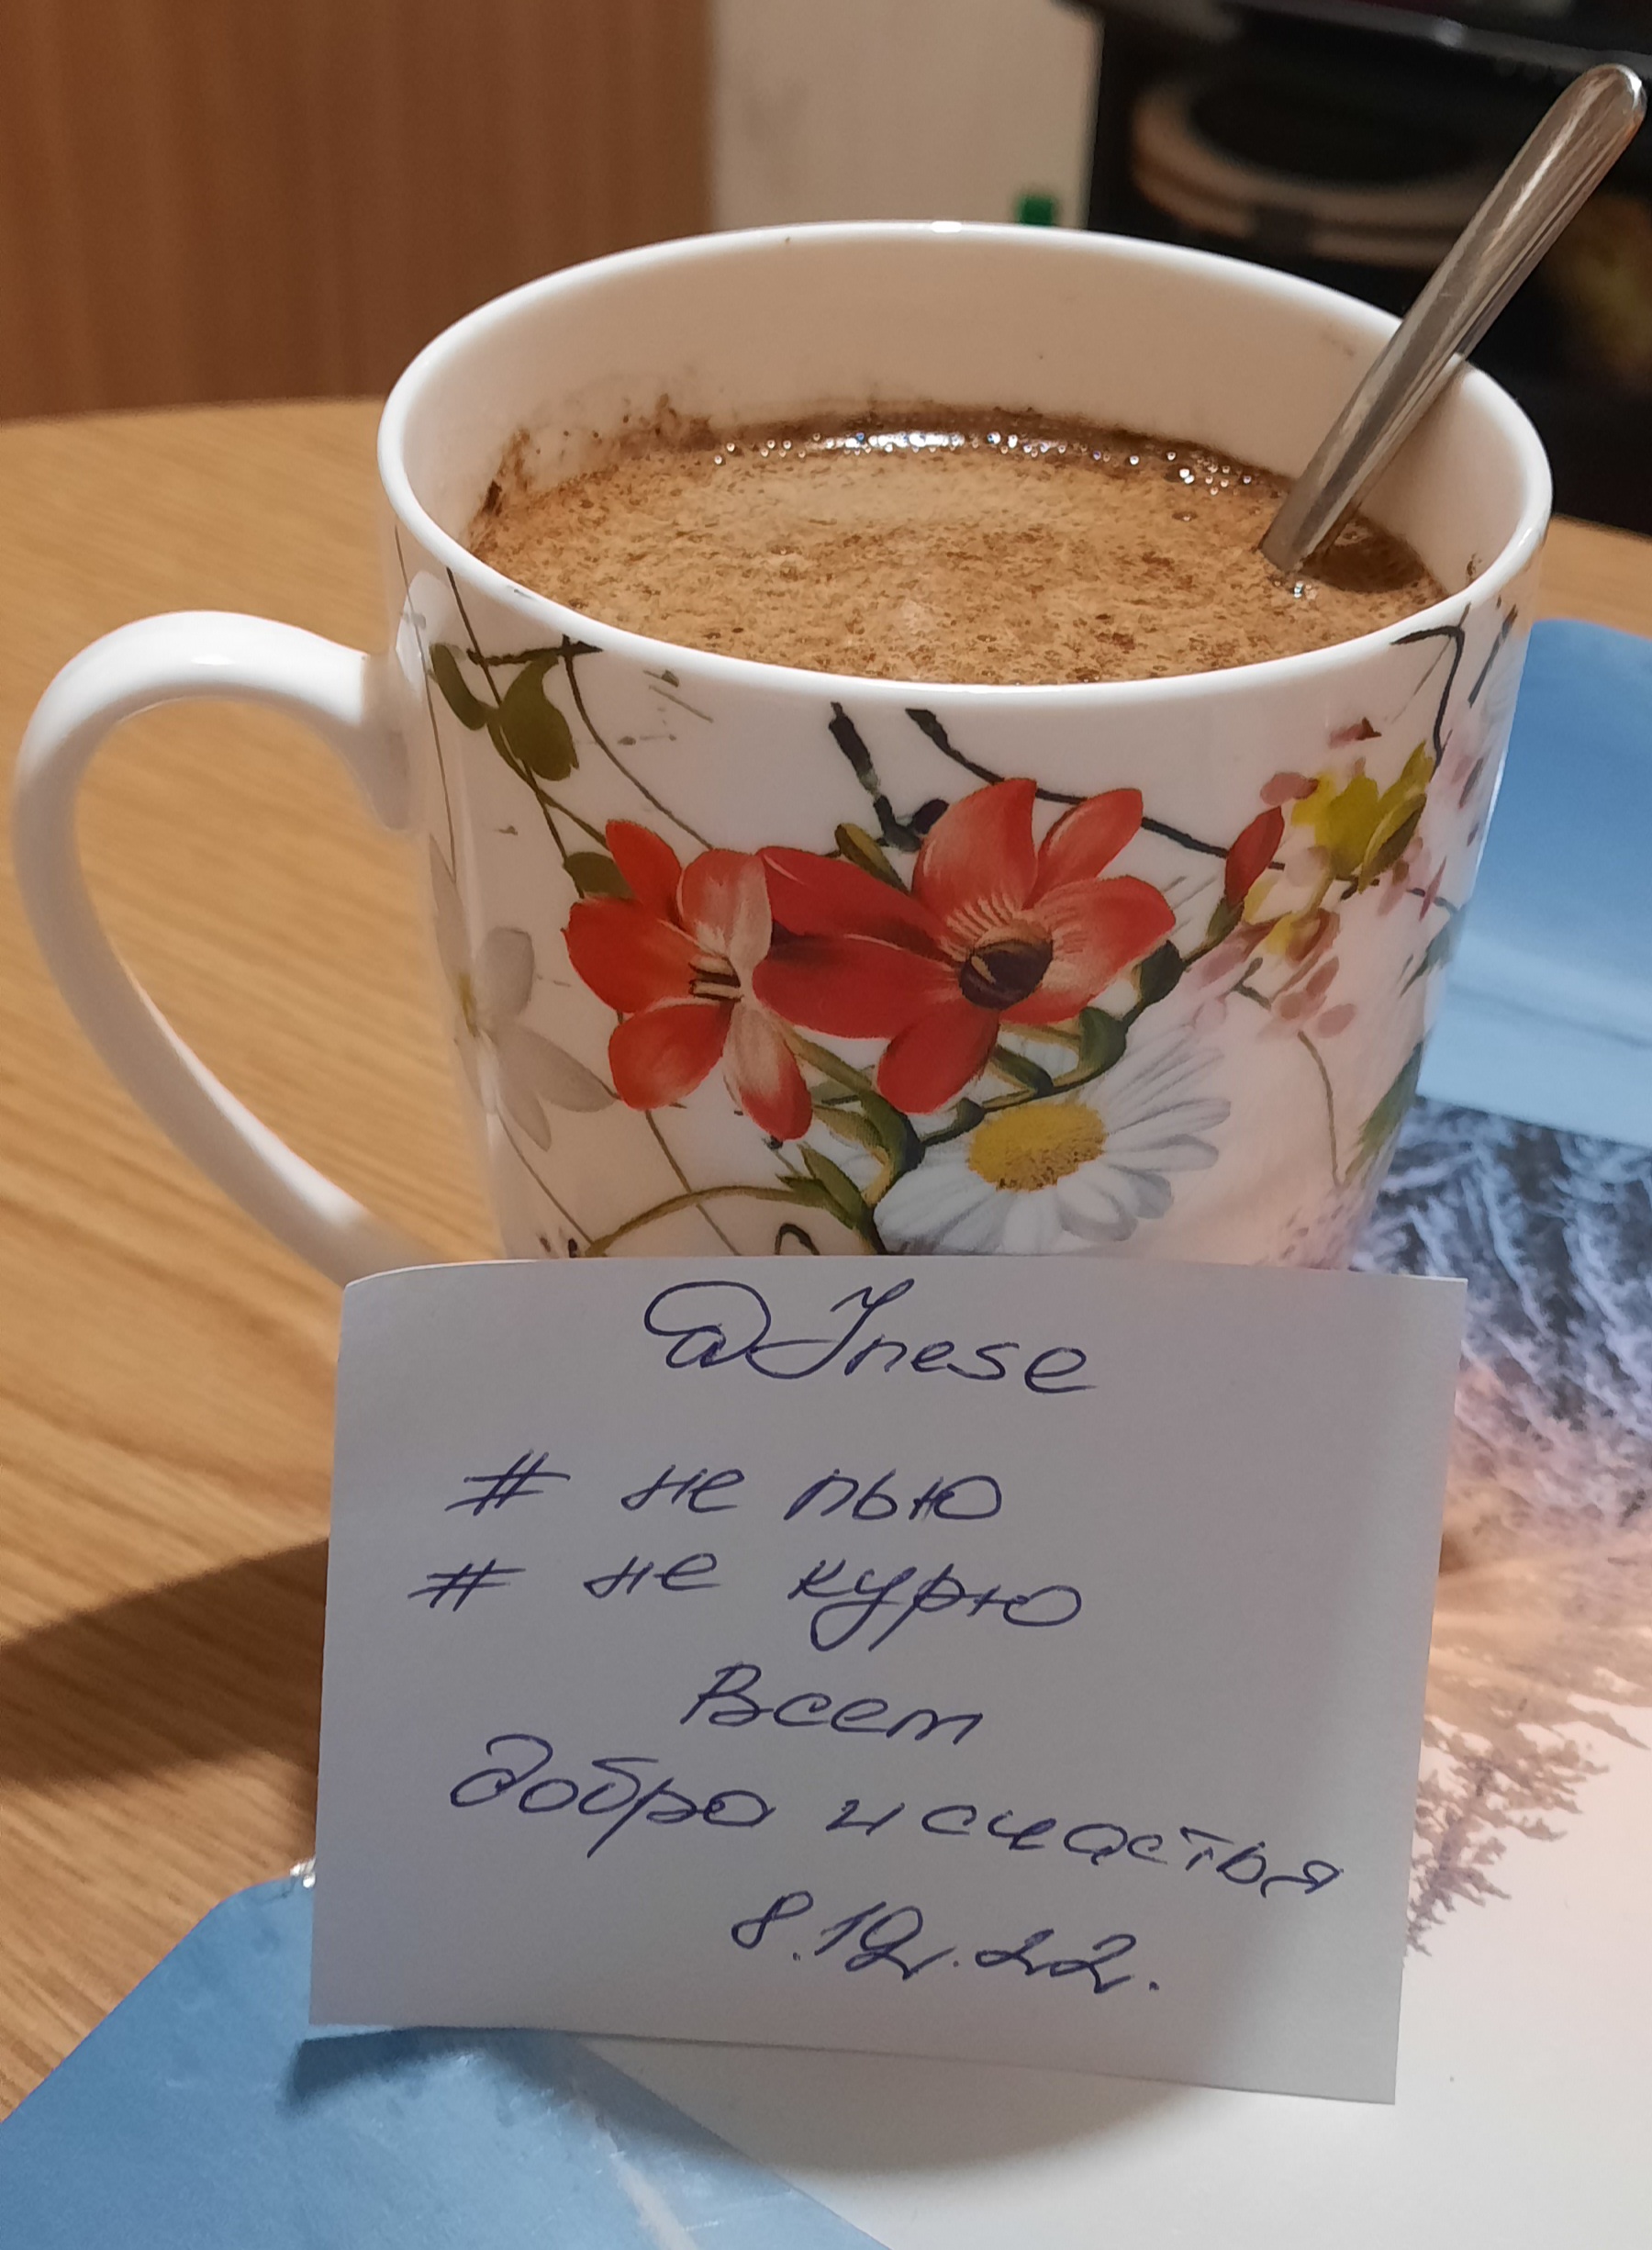 @Inese
# не пью
# не курю
Всем
добра и счастья
8.12.22.